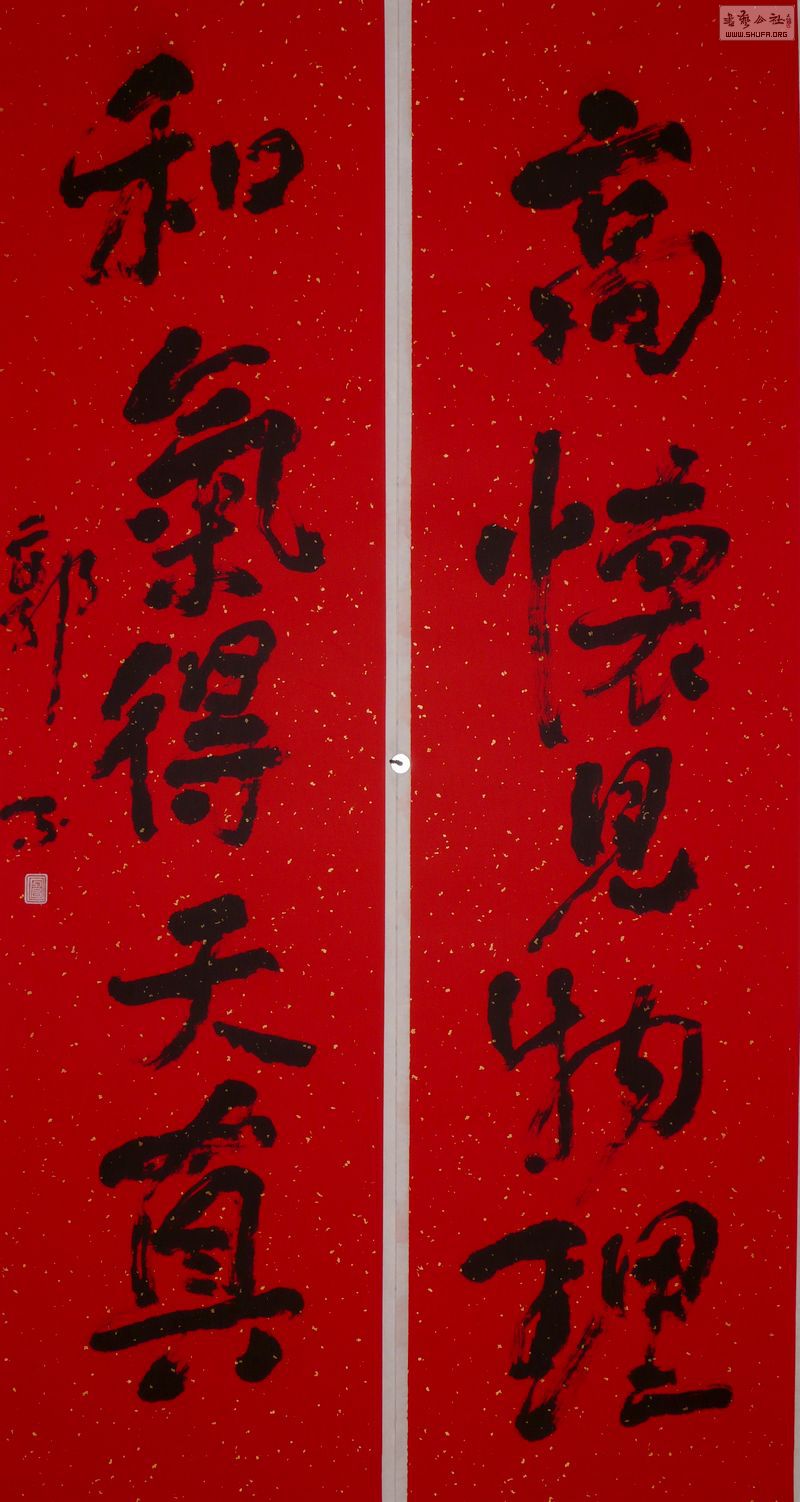 高懷見物理
和氣得天真
郭
書藝公社
WWW.SHUFA.ORG